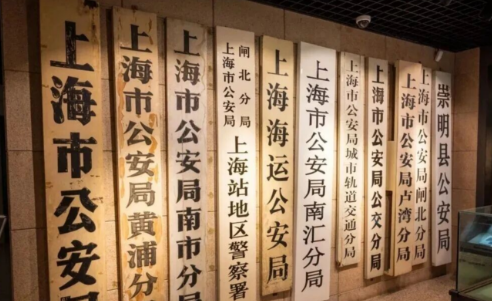 上海市公安局
上海市公安局黄浦分
上海市公安局南市分局
上海市公安局
闸北分局
上海站地区警察署
上海海运公安局
上海市公安局南汇分局
上海市公安局城市轨道交通分局
上海市公安局公交分局
上海市公安局卢湾分局
上海市公安局闸北分局
崇明县公安局